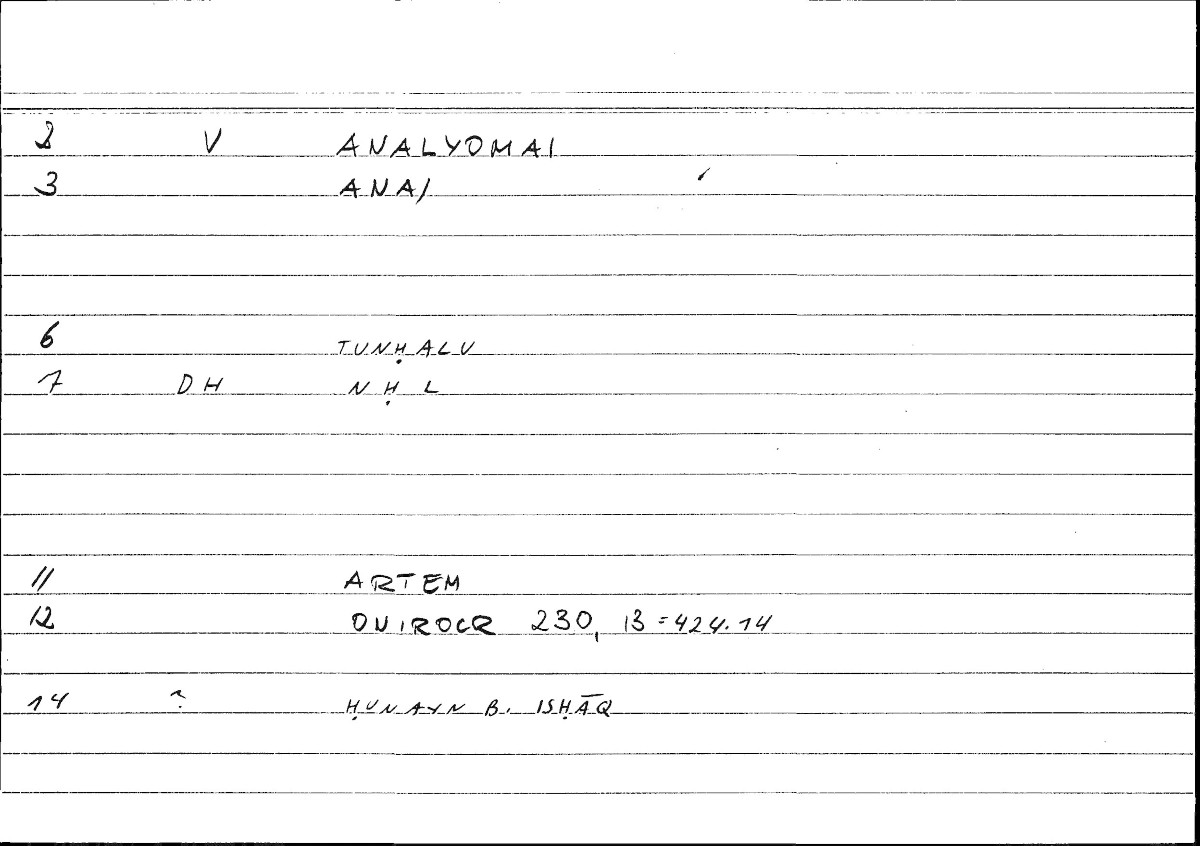 2 V ANALYOMAI
3 ANA/
6 TUNḤALU
7 DH NḤL
11 ARTEM
12 ONIROCR 230, 13=424.14
14 ? ḤUNAYN B. ISḤĀQ